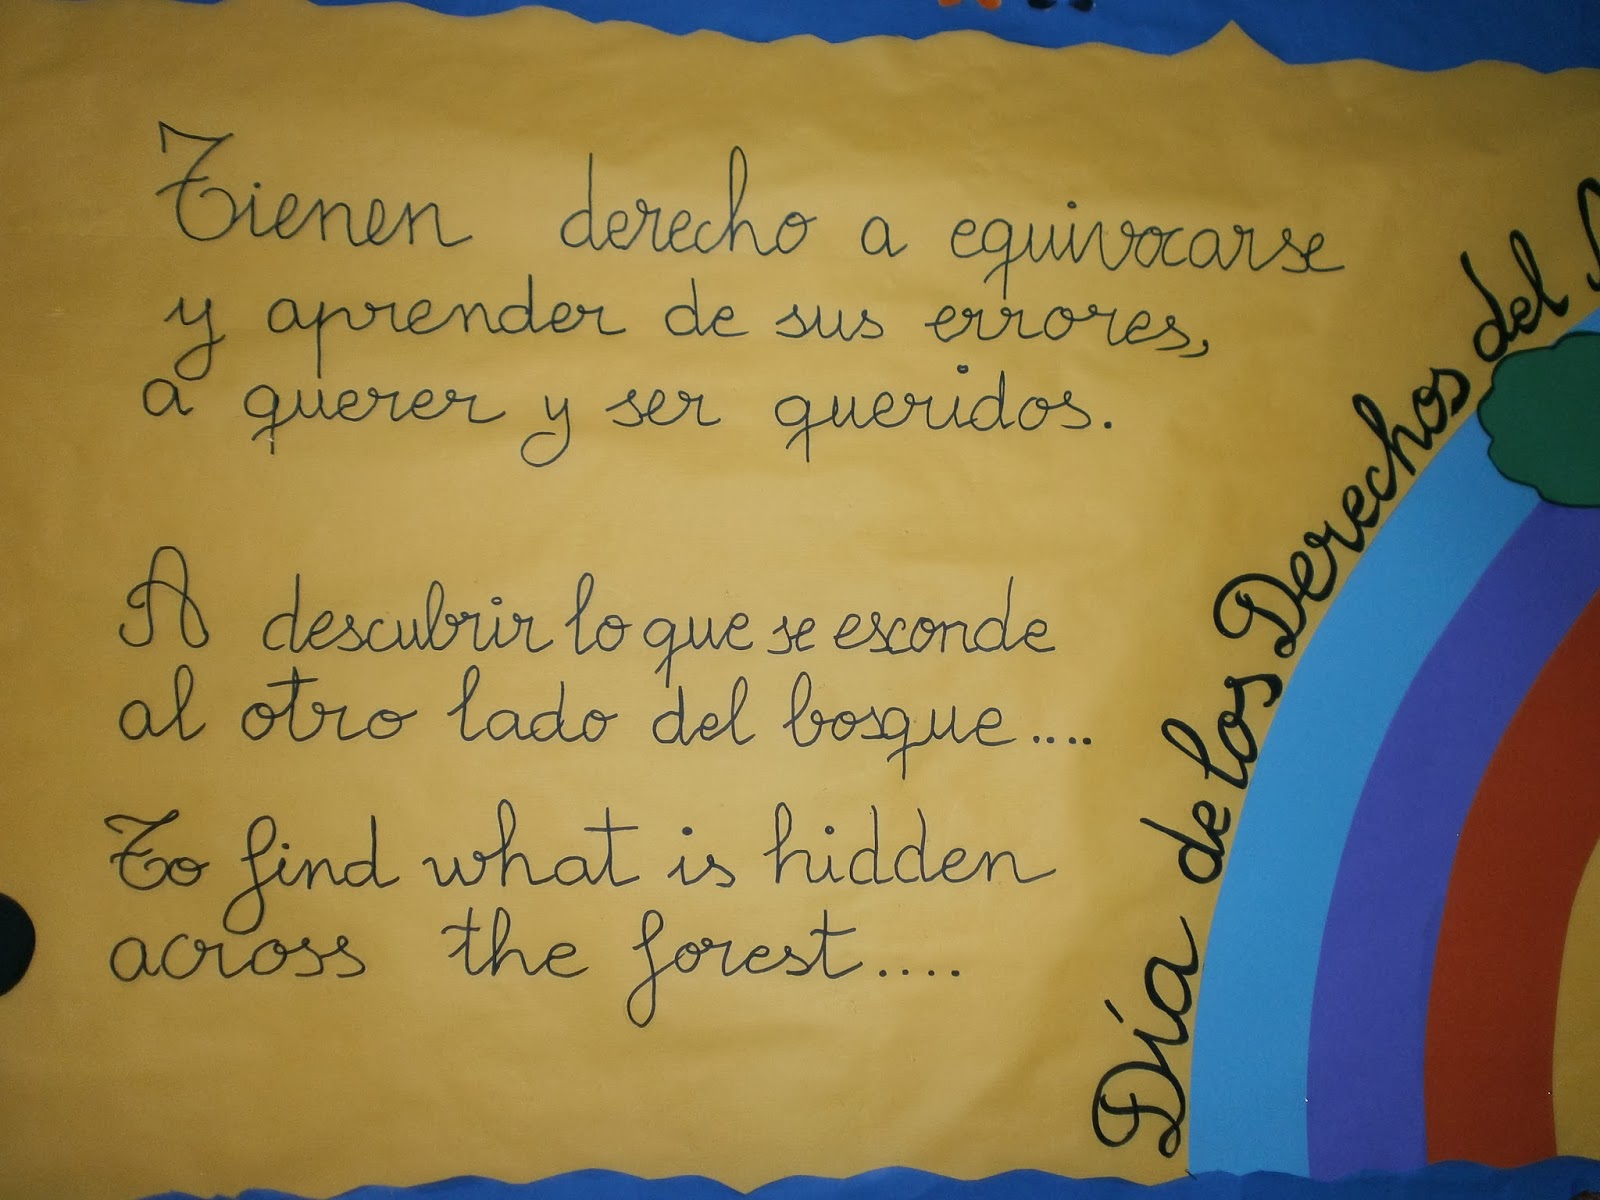 Tienen derecho a equivocarse
y aprender de sus errores,
a querer y ser queridos.
A descubrir lo que se esconde
al otro lado del bosque....
To find what is hidden
across the forest....
Día de los Derechos del